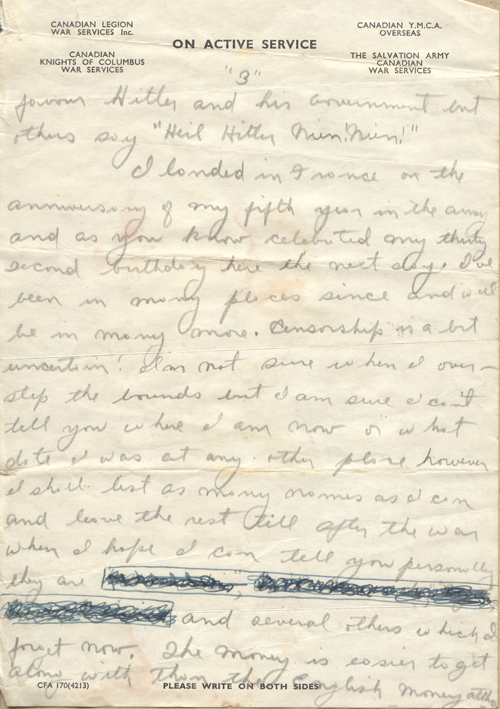 CANADIAN LEGION
WAR SERVICES Inc.
CANADIAN
KNIGHTS OF COLUMBUS
WAR SERVICES
ON ACTIVE SERVICE
CANADIAN Y.M.C.A.
OVERSEAS
THE SALVATION ARMY
CANADIAN
WAR SERVICES
"3"
favour Hitler and his Government but
others say "Heil Hitler Nien! Nien!"
I landed in France on the
anniversary of my fifth year in the army
and as you know celebrated my thirty
second birthday here the next day. I've
been in many places since and will
be in many more. Censorship is a bit
uncertain! I'm not sure when I over-
step the bounds but I am sure I can't
tell you where I am now or what
date I was at any other place however
I shall list as many names as I can
and leave the rest till after the war
when I hope I can tell you personally
they are
and several others which I
forget now. The money is easier to get
along with than the English money
CFA 170(4213)
PLEASE WRITE ON BOTH SIDES